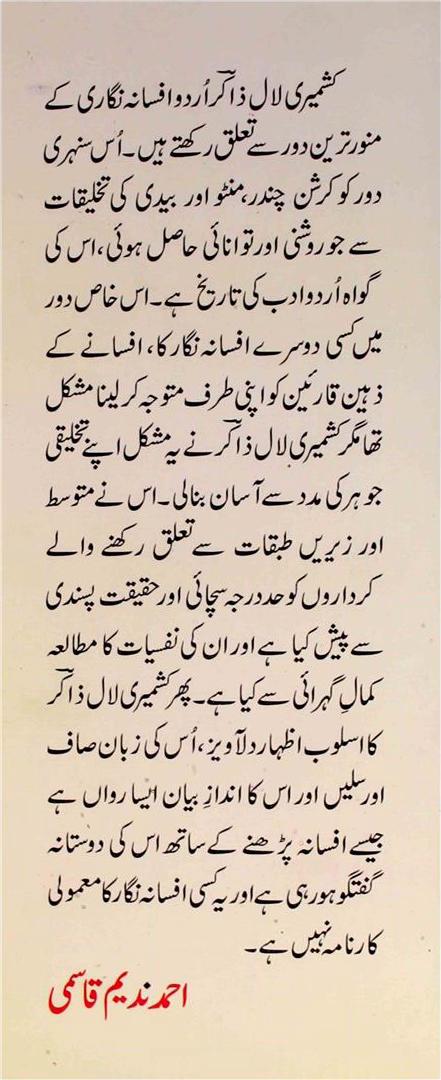 کشمیری لال ذاکرؔ اُردو افسانہ نگاری کے
منور ترین دور سے تعلق رکھتے ہیں۔ اُس سنہری
دور کو کرشن چندر، منٹو اور بیدی کی تخلیقات
سے جو روشنی اور توانائی حاصل ہوئی، اس کی
گواہ اُردو ادب کی تاریخ ہے۔ اس خاص دور
میں کسی دوسرے افسانہ نگار کا، افسانے کے
ذہین قارئین کو اپنی طرف متوجہ کر لینا مشکل
تھا مگر کشمیری لال ذاکرؔ نے یہ مشکل اپنے تخلیقی
جوہر کی مدد سے آسان بنالی۔ اس نے متوسط
اور زیریں طبقات سے تعلق رکھنے والے
کرداروں کو حد درجہ سچائی اور حقیقت پسندی
سے پیش کیا ہے اور ان کی نفسیات کا مطالعہ
کمالِ گہرائی سے کیا ہے۔ پھر کشمیری لال ذاکرؔ
کا اسلوب اظہار دلآویز، اُس کی زبان صاف
اور سلیں اور اس کا اندازِ بیان ایسا رواں ہے
جیسے افسانہ پڑھنے کے ساتھ اس کی دوستانہ
گفتگو ہو رہی ہے اور یہ کسی افسانہ نگار کا معمولی
کارنامہ نہیں ہے۔
احمد ندیم قاسمی